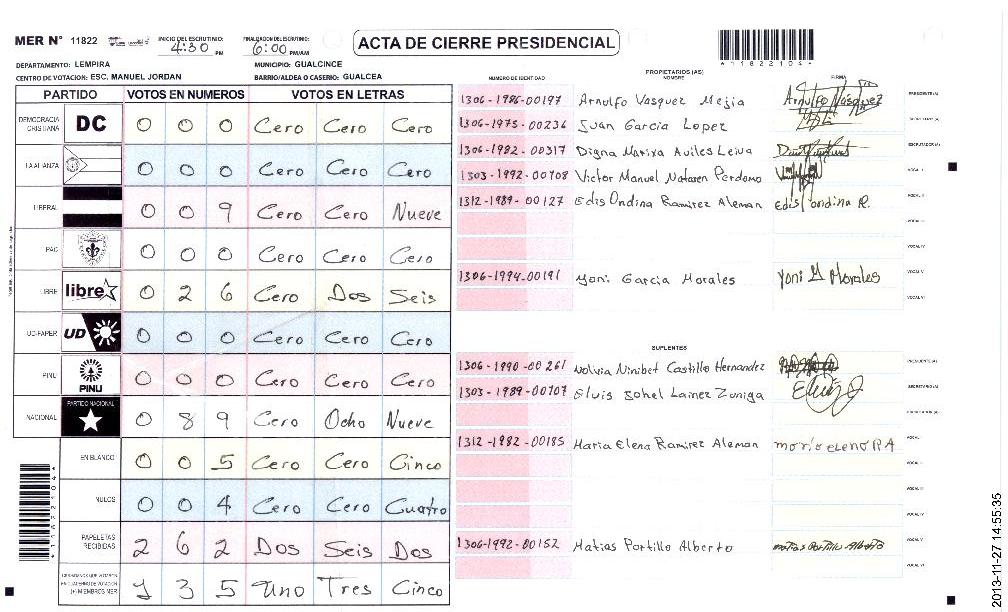 MER N° 11822
INICIO DEL ESCRUTINIO: 4:30 PM
FINALIZACION DEL ESCRUTINIO: 6:00 PM/AM
ACTA DE CIERRE PRESIDENCIAL
*11822104*
DEPARTAMENTO: LEMPIRA
MUNICIPIO: GUALCINCE
CENTRO DE VOTACION: ESC. MANUEL JORDAN
BARRIO/ALDEA O CASERIO: GUALCEA
PARTIDO VOTOS EN NUMEROS VOTOS EN LETRAS
DEMOCRACIA CRISTIANA DC 0 0 0 Cero Cero Cero
LA ALIANZA 0 0 0 Cero Cero Cero
LIBERAL 0 0 9 Cero Cero Nueve
PAC 0 0 0 Cero Cero Cero
LIBRE libre 0 2 6 Cero Dos Seis
UD-FAPER UD 0 0 0 Cero Cero Cero
PINU PINU 0 0 0 Cero Cero Cero
NACIONAL PARTIDO NACIONAL 0 8 9 Cero Ocho Nueve
EN BLANCO 0 0 5 Cero Cero Cinco
NULOS 0 0 4 Cero Cero Cuatro
PAPELETAS RECIBIDAS 2 6 2 Dos Seis Dos
CIUDADANOS QUE VOTARON EN CUADERNO DE VOTACION (+) MIEMBROS MER 1 3 5 Uno Tres Cinco
*11822104*
PROPIETARIOS (AS)
NUMERO DE IDENTIDAD NOMBRE FIRMA
1306-1986-00197 Arnulfo Vasquez Mejia Arnulfo Vasquez PRESIDENTE (A)
1306-1975-00236 Juan Garcia Lopez SECRETARIO (A)
1306-1982-00317 Digna Marixa Aviles Leiva ESCRUTADOR (A)
1303-1992-00708 Victor Manuel Nataren Perdomo VOCAL I
1312-1989-00127 Edis Ondina Ramirez Aleman Edis ondina R. VOCAL II
VOCAL III
VOCAL IV
1306-1994-00191 Yoni Garcia Morales Yoni G Morales VOCAL V
VOCAL VI
SUPLENTES
1306-1990-00261 Ninibet Castillo Hernandez PRESIDENTE (A)
1303-1989-00707 Elvis Sohel Lainez Zuniga SECRETARIO (A)
ESCRUTADOR (A)
1312-1982-00185 Maria Elena Ramirez Aleman maria elena RA VOCAL I
VOCAL II
VOCAL III
VOCAL IV
1306-1992-00152 Matias Portillo Alberto matias Portillo Alberto VOCAL V
VOCAL VI
2013-11-27 14:55:35